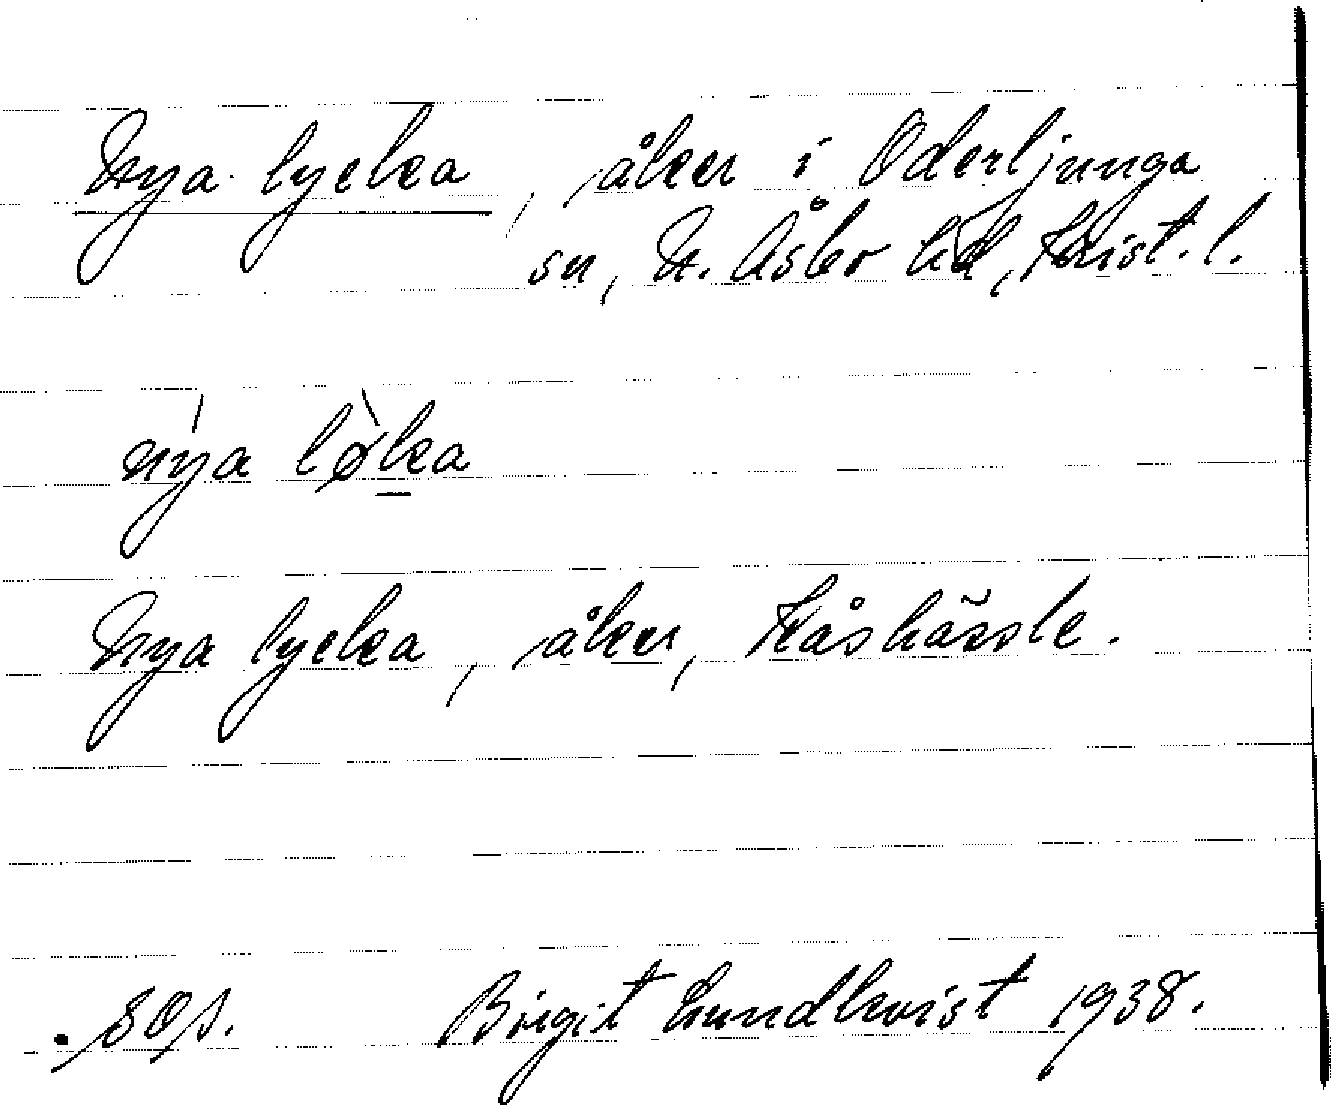 Nya lycka, åker i Oderljunga
sn, N. Åsbo hd, Krist. l.
nýa lø̀ka
Nya lycka, åker, Kåshässle.
Birgit Lundkvist 1938.